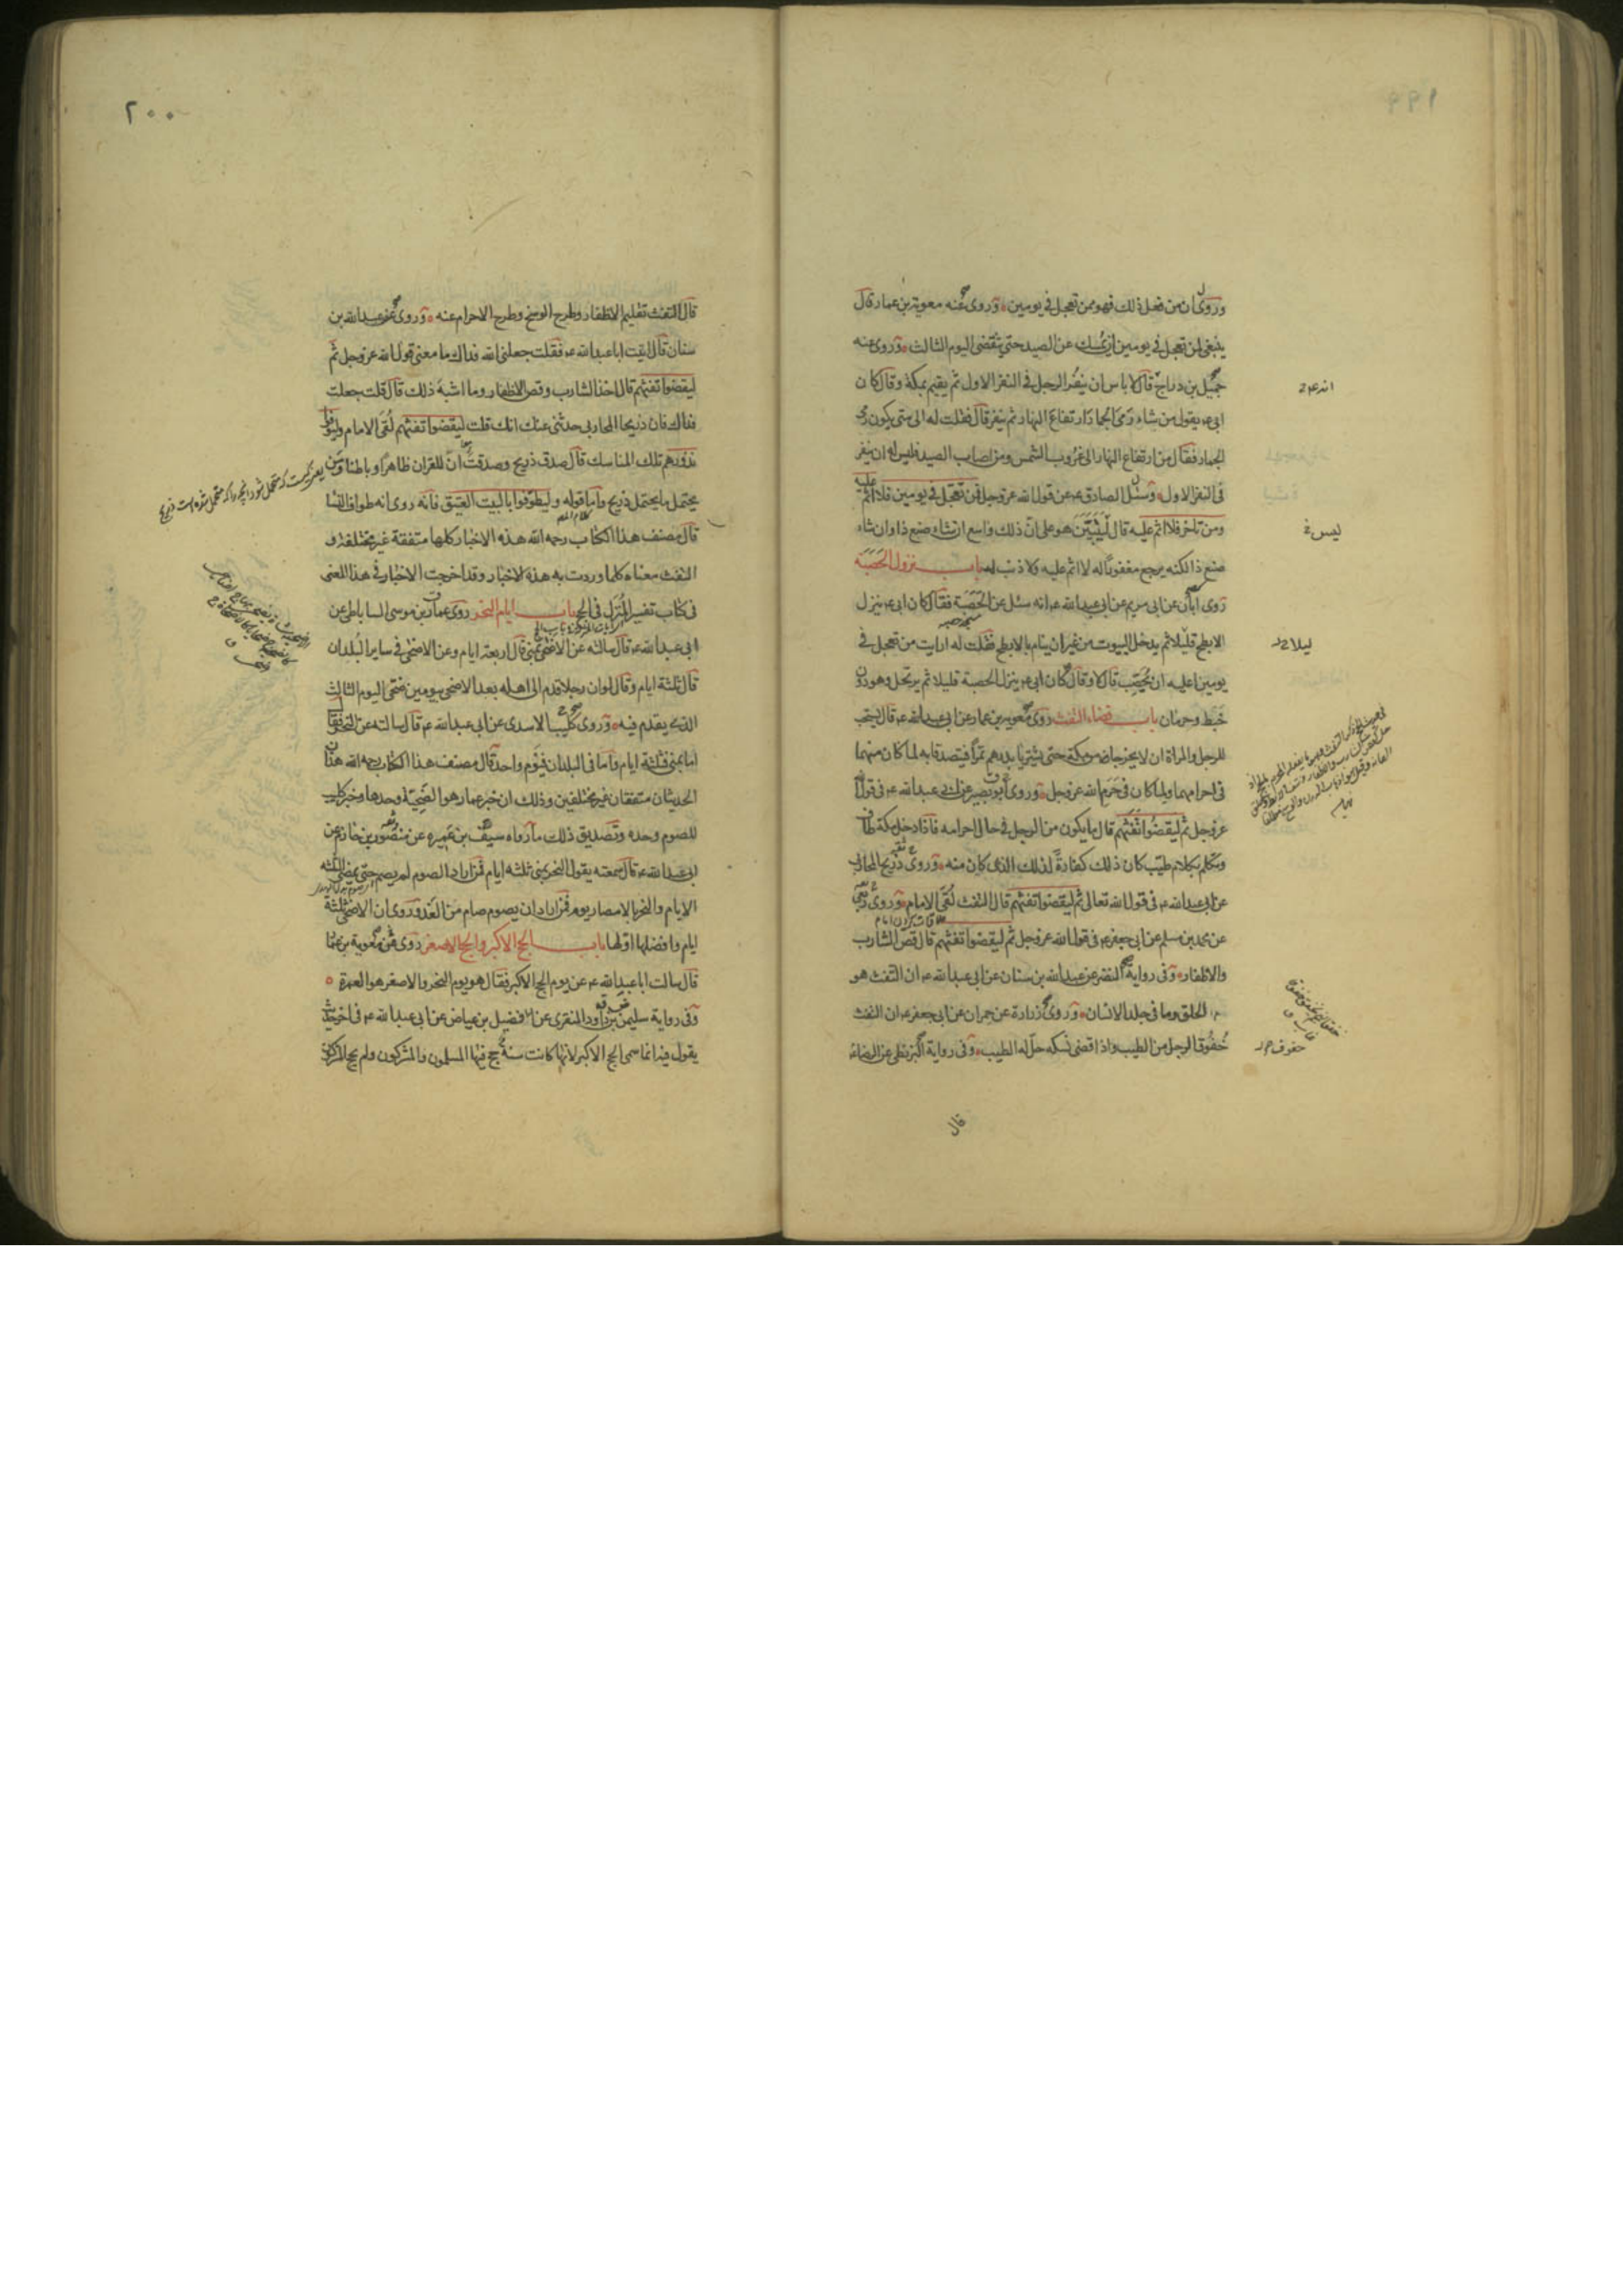 ١٩٩
وروى ان من فعل ذلك فهو ممن تعجل فى يومين وروى عنه معوية بن عمار قال
ينبغى لمن تعجل فى يومين ان يمسك عن الصيد حتى ينقضى اليوم الثالث وروى عنه
جميل بن دراج قال لا باس ان ينفر الرجل فى النفر الاول ثم يقيم بمكة وقال كان
ابى ع يقول من شاء رمى الجمار ارتفاع النهار ثم ينفر قال فقلت له الى متى يكون رمى
الجمار فقال من ارتفاع النهار الى غروب الشمس ومن اصاب الصيد فليس له ان ينفر
فى النفر الاول وسئل الصادق ع عن قول الله عز وجل فمن تعجل فى يومين فلا اثم عليه
ومن تاخر فلا اثم عليه قال ليبين هو على ان ذلك واسع ان شاء صنع ذا وان شاء
صنع ذا لكنه يرجع مغفورا له لا اثم عليه ولا ذنب له باب نزول الحصبة
روى ابان عن ابى مريم عن ابى عبد الله ع انه سئل عن الحصبة فقال كان ابى ع ينزل
الابطح قليلا ثم يدخل البيوت من غير ان ينام بالابطح فقلت له ارايت من تعجل فى
يومين اعليه ان يحصب قال لا وقال كان ابى ع ينزل الحصبة قليلا ثم يرتحل وهو دون
خبط وحرمان باب قضاء التفث روى معوية بن عمار عن ابى عبد الله ع قال يستحب
للرجل والمراة ان لا يخرجا من مكة حتى يشتريا بدرهم تمرا فيتصدقا به لما كان منهما
فى احرامهما ولما كان فى حرم الله عز وجل وروى ابو بصير عن ابى عبد الله ع فى قول الله
عز وجل ثم ليقضوا تفثهم قال ما يكون من الرجل فى حال احرامه فاذا دخل مكة طاف
وتكلم بكلام طيب كان ذلك كفارة لذلك الذى كان منه وروى ذريح المحاربى
عن ابى عبد الله ع فى قول الله تعالى ثم ليقضوا تفثهم قال التفث لقى الامام وروى ربعى
عن محمد بن مسلم عن ابى جعفر ع فى قول الله عز وجل ثم ليقضوا تفثهم قال قص الشارب
والاظفار وفى رواية النضر عن عبد الله بن سنان عن ابى عبد الله ع ان التفث هو
الحلق وما فى جلد الانسان وروى زرارة عن حمران عن ابى جعفر ع ان التفث
حفوف الرجل من الطيب واذا قضى نسكه حل له الطيب وفى رواية البزنطى عن الرضا ع
قال
ليس
ليلا
حفوف
٢٠٠
قال التفث تقليم الاظفار وطرح الوسخ وطرح الاحرام عنه وروى عن عبد الله بن
سنان قال اتيت ابا عبد الله ع فقلت جعلنى الله فداك ما معنى قول الله عز وجل ثم
ليقضوا تفثهم قال اخذ الشارب وقص الاظفار وما اشبه ذلك قال قلت جعلت
فداك فان ذريحا المحاربى حدثنى عنك انك قلت ليقضوا تفثهم لقى الامام وليوفوا
نذورهم تلك المناسك قال صدق ذريح وصدقت ان للقران ظاهرا وباطنا ومن
يحتمل ما يحتمل ذريح واما قوله وليطوفوا بالبيت العتيق فانه روى انه طواف النسا
قال مصنف هذا الكتاب رحمه الله هذه الاخبار كلها متفقة غير مختلفة و
التفث معناه كلما وردت به هذه الاخبار وقد اخرجت الاخبار فى هذا المعنى
فى كتاب تفسير المنزل فى الحج باب ايام النحر روى عمار بن موسى الساباطى عن
ابى عبد الله ع قال سالته عن الاضحى بمنى قال اربعة ايام وعن الاضحى فى ساير البلدان
قال ثلثة ايام وقال لو ان رجلا قدم الى اهله بعد الاضحى بيومين ضحى اليوم الثالث
الذى يقدم فيه وروى كليب الاسدى عن ابى عبد الله ع قال سالته عن النحر فقال
اما بمنى فثلثة ايام واما فى البلدان فيوم واحد قال مصنف هذا الكتاب رحمه الله هذان
الحديثان متفقان غير مختلفين وذلك ان خبر عمار هو الضحية وحدها وخبر كليب
للصوم وحده وتصديق ذلك ما رواه سيف بن عميره عن منصور بن حازم عن
ابى عبد الله ع قال سمعته يقول النحر بمنى ثلثه ايام فمن اراد الصوم لم يصم حتى يمضى الثلثه
الايام والنحر بالامصار يوم فمن اراد ان يصوم صام من الغد وروى ان الاضحى ثلثة
ايام وافضلها اولها باب الحج الاكبر والحج الاصغر روى عن معوية بن عمار
قال سالت ابا عبد الله ع عن يوم الحج الاكبر فقال هو يوم النحر والاصغر هو العمرة
وفى رواية سليمن بن داود المنقرى عن فضيل بن عياض عن ابى عبد الله ع فى اخر حديث
يقول فيه انما سمى الحج الاكبر لانها كانت سنة حج فيها المسلمون والمشركون ولم يحج المشركون